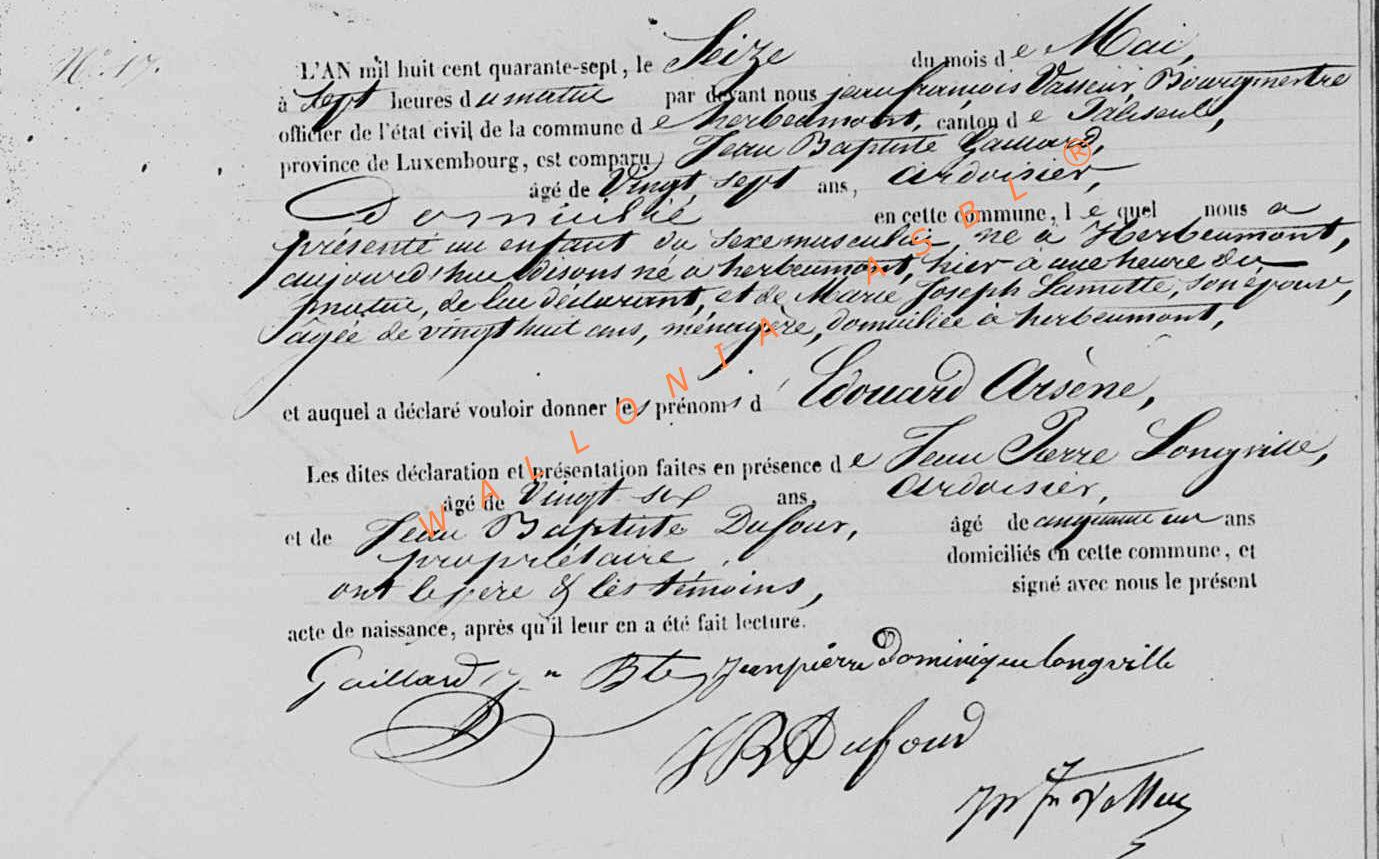 N° 17.
L'AN mil huit cent quarante-sept, le Seize du mois de Mai,
à Sept heures du matin par devant nous jean françois Vasseur, Bourgmestre
officier de l'état civil de la commune de herbeumont, canton de Paliseul,
province de Luxembourg, est comparu Jean Baptiste Gaillard,
âgé de Vingt sept ans, ardoisier,
Domicilié en cette commune, lequel nous a
présenté un enfant du sexe masculin, né à Herbeumont,
aujourd'hui disons né à herbeumont, hier à une heure du
matin, de lui déclarant, et de Marie Joseph Lamotte, son épouse,
agée de vingt huit ans, ménagère, domiciliée à herbeumont,
et auquel a déclaré vouloir donner les prénoms d' Edouard Arsène,
Les dites déclaration et présentation faites en présence de Jean Pierre Longville,
âgé de Vingt six ans, ardoisier,
et de Jean Baptiste Dufour, âgé de cinquante un ans
propriétaire, domiciliés en cette commune, et
ont le père & les témoins, signé avec nous le présent
acte de naissance, après qu'il leur en a été fait lecture.
Gaillard Jn Bte jeanpierre Dominique longville
JB Dufour
WALLONIA ASBL ®